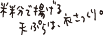 米粉で揚げる
天ぷらは、衣さっくり。